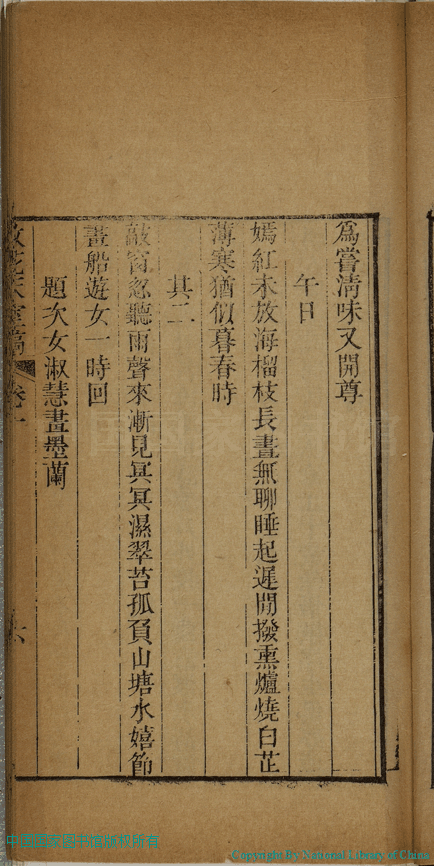 為嘗清味又開尊
午日
嫣紅未放海榴枝長晝無聊睡起遲閒撥熏爐燒白芷
薄寒猶似暮春時
其二
敲窗忽聽雨聲來漸見冥冥濕翠苔孤負山塘水嬉節
畫船遊女一時回
題次女淑慧畫墨蘭
卷一
六
Copyright By National Library of China